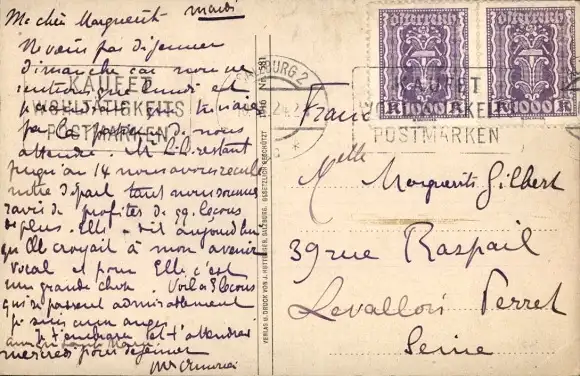 Ma chère Marguerite mardi
Ne viens pas déjeuner
dimanche car nous ne
rentrons que lundi et
pas la peine de nous
attendre. M. L.L. restant
jusqu'au 14 nous avons reculé
notre départ tant nous sommes
ravis de profiter de qq. leçons
de plus. Elle a dit aujourd'hui
qu'Elle croyait à mon avenir
vocal et pour Elle c'est
une grande chose. Voilà 8 leçons
qui se passent admirablement
je suis aux anges
Je t'embrasse et t'attendrai
mercredi pour déjeuner
KAUFET
WOHLTÄTIGKEITS
POSTMARKEN
SALZBURG 2
Österreich
K 1000 K
Österreich
K 1000 K
KAUFET
POSTMARKEN
France
Melle Marguerite Gilbert
39 rue Raspail
Levallois Perret
Seine
1916 No. 581
GESETZLICH GESCHÜTZT
VERLAG U. DRUCK VON J. HUTTEGGER, SALZBURG.